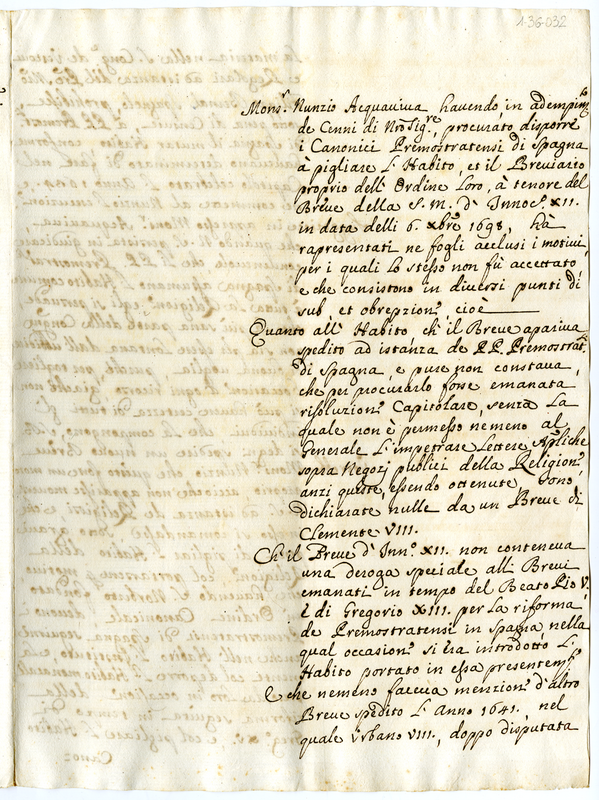 1-36-032
Mons.r Nunzio Acquaviva havendo in adempim.to
de Cenni di Nro Sig.re, procurato disporre
i Canonici Premostratensi di Spagna
à pigliare L'Habito, et il Breviario
proprio dell'Ordine Loro, à tenore del
Breve della S. M. d'Innoc.o XII.
in data delli 6. Xbre 1698, hà
rapresentati ne fogli acclusi i motivi,
per i quali Lo stesso non fù accettato,
e che consistono in diversi punti di
sub, et obrepzion.e cioè
Quanto all'Habito ch'il Breve apariva
spedito ad istanza de PP. Premostrat.i
di Spagna, e pure non constava,
che per procurarlo fosse emanata
risoluzion.e Capitolare, senza La
quale non è permesso nemeno al
Generale L'impetrare Lettere Apliche
sopra Negozj publici della Religion.e,
anzi queste, essendo ottenute, sono
dichiarate nulle da un Breve di
Clemente VIII.
Ch'il Breve d'Inn.o XII. non conteneva
una deroga speziale alli Brevi
emanati in tempo del Beato Pio V.
e di Gregorio XIII. per La riforma
de Premostratensi in Spagna, nella
qual occasion.e si era introdotto L'
Habito portato in essa presentem.te
E che nemeno faceva menzion.e d'altro
Breve spedito L'Anno 1641, nel
quale Urbano VIII., doppo disputata